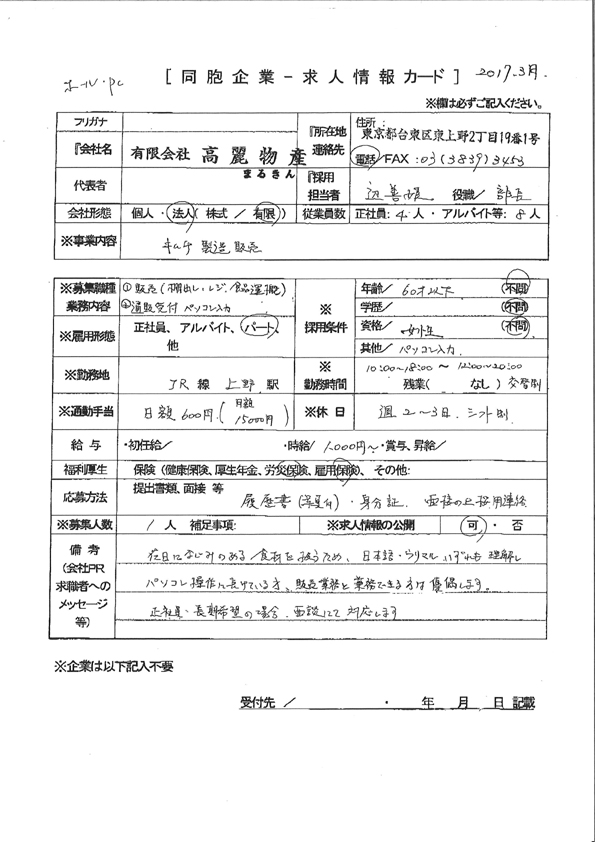 ホール・PC
[ 同 胞 企 業 - 求 人 情 報 カード ] 2017.3月.
※欄は必ずご記入ください。
フリガナ
『会社名 有限会社 高麗物産
まるきん
『所在地 連絡先
住所:
東京都台東区東上野2丁目19番1号
電話/FAX:03(3839)3453
代表者
『採用 担当者 役職/ 部長
会社形態 個人・法人( 株式 / 有限 ))
従業員数 正社員: 4 人 ・ アルバイト等: 8 人
※事業内容 キムチ 製造 販売
※募集職種 業務内容
①販売(棚出し・レジ・食品運搬)
②通販受付 パソコン入力
※雇用形態 正社員、アルバイト、パート、
他
※ 採用条件
年齢/ 60才以下 (不問)
学歴/ (不問)
資格/ 女性 (不問)
其他/ パソコン入力.
※勤務地 JR 線 上野 駅
※ 勤務時間 10:00~18:00 ~ 12:00~20:00
残業( なし ) 交替制
※通勤手当 日額 600円. (月額 15000円)
※休 日 週 2~3日. シフト制
給 与 ・初任給/ ・時給/ 1,000円~・賞与、昇給/
福利厚生 保険 (健康保険、厚生年金、労災保険、雇用保険)、 その他:
応募方法 提出書類、面接 等
履歴書(写真有)・身分証. 面接の上採用連絡
※募集人数 1 人 補足事項:
※求人情報の公開 可 ・ 否
備 考
(会社PR
求職者への
メッセージ
等)
在日になじみのある食材を扱うため、日本語・ウリマル いずれも 理解し
パソコン操作に長けている方、販売業務と兼務できる方は優偶します。
正社員・長期希望の場合、面談にて対応します
※企業は以下記入不要
受付先 / ・ 年 月 日 記載